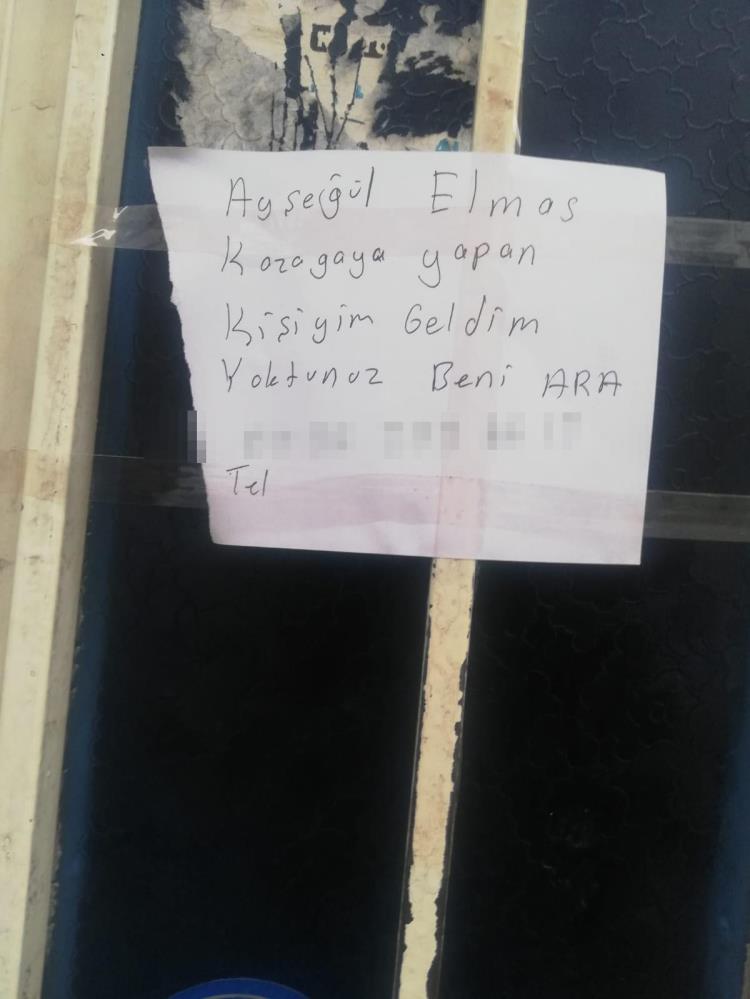 Ayşegül Elmas
Kazagaya yapan
Kişiyim Geldim
Yoktunuz Beni ARA
Tel